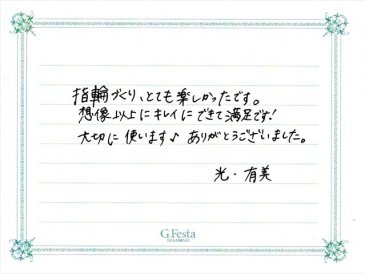 指輪づくり、とても楽しかったです。
想像以上にキレイにできて満足です!
大切に使います♪ ありがとうございました。
光・有美
G.Festa